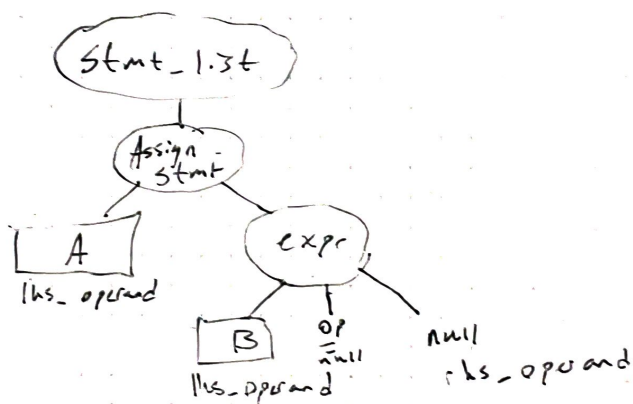 stmt_1.3t
Assign_
stmt
A
lhs_operand
expr
B
lhs_operand
op
=
null
null
rhs_operand